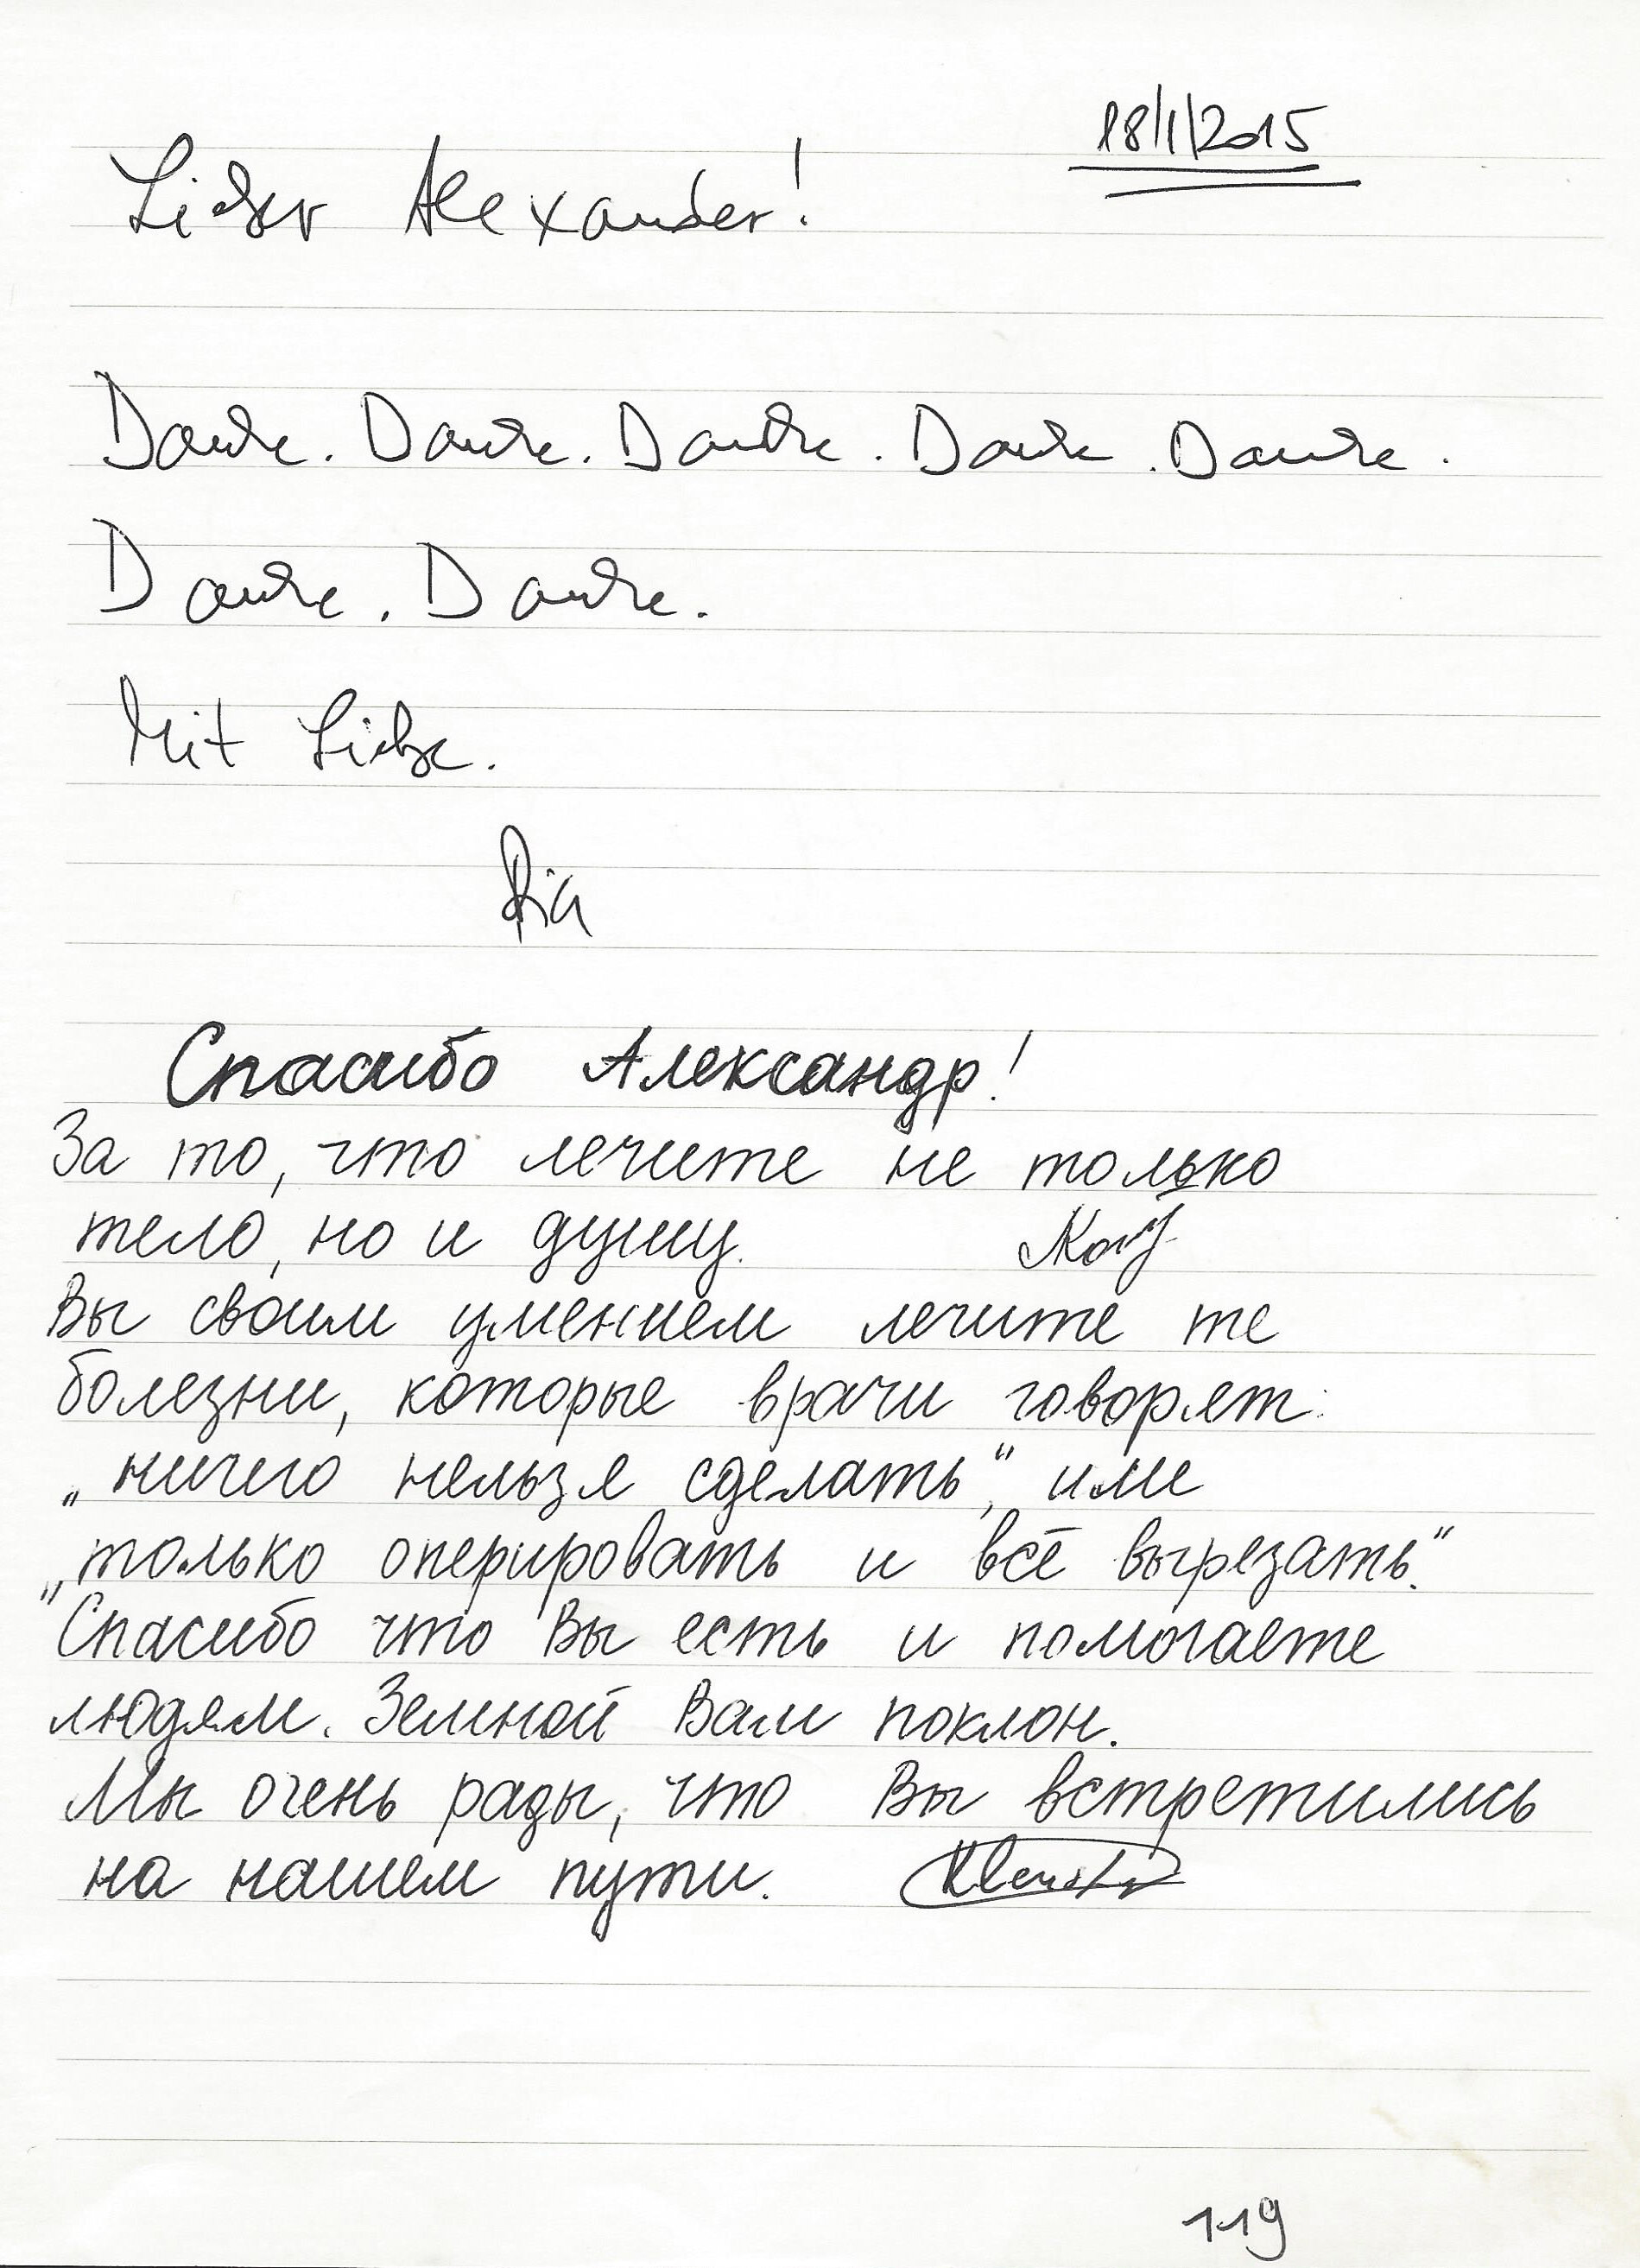 18/1/2015
Lieber Alexander!
Danke. Danke. Danke. Danke. Danke.
Danke. Danke.
Mit Liebe.
Ria
Спасибо Александр!
За то, что лечите не только
тело, но и душу.
Вы своим умением лечите те
болезни, которые врачи говорят:
„ничего нельзя сделать“, или
„только оперировать и всё вырезать“.
Спасибо что Вы есть и помогаете
людям. Земной Вам поклон.
Мы очень рады, что Вы встретились
на нашем пути.
119